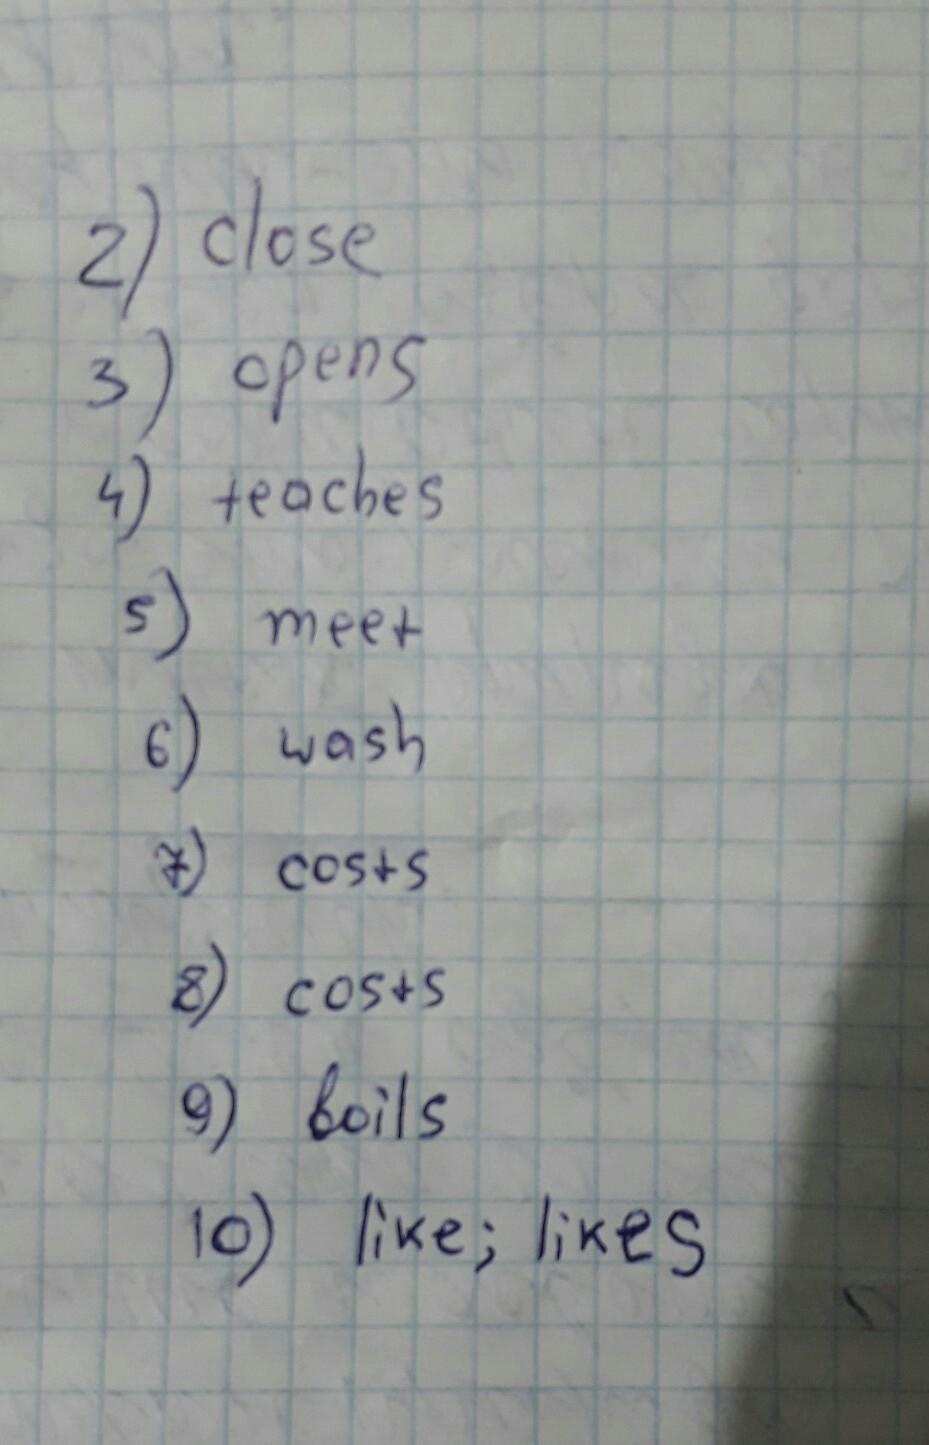 2) close
3) opens
4) teaches
5) meet
6) wash
7) costs
8) costs
9) boils
10) like; likes